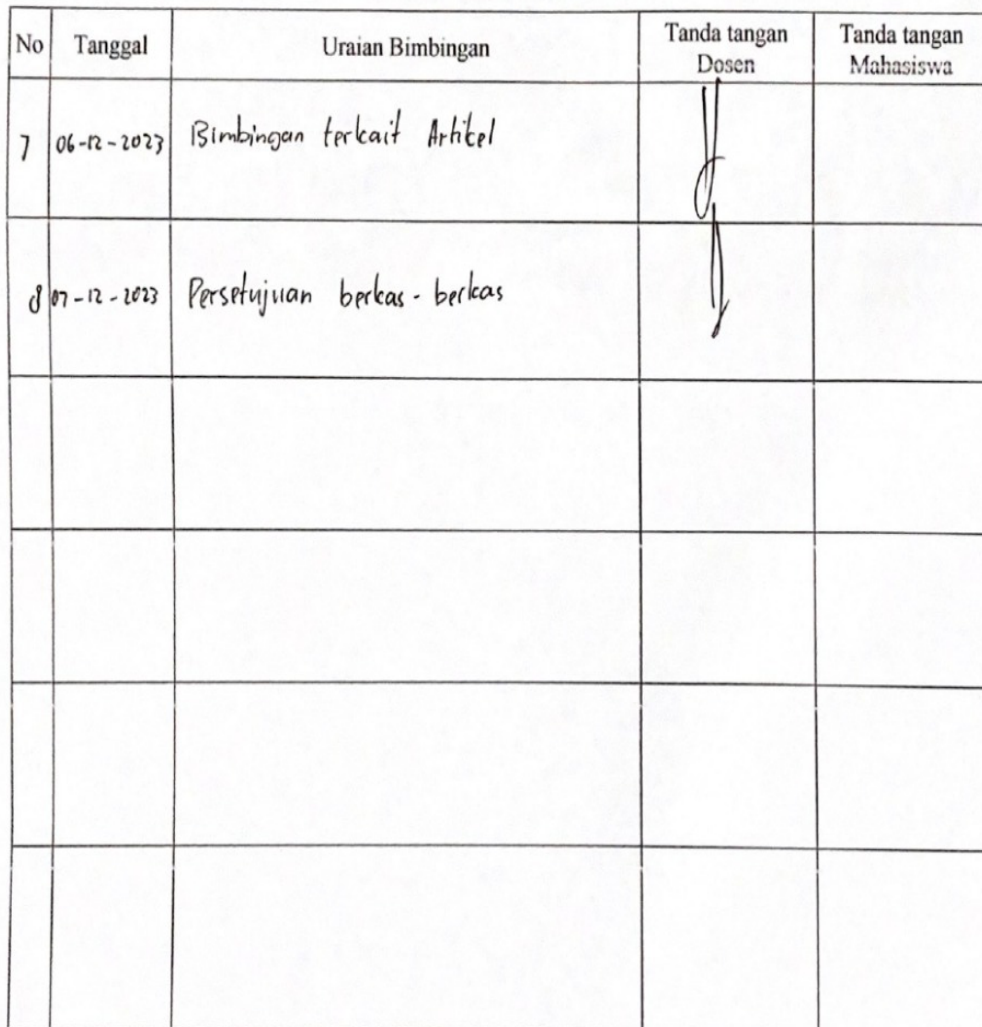 No Tanggal Uraian Bimbingan Tanda tangan Dosen Tanda tangan Mahasiswa
7 06-12-2023 Bimbingan terkait Artikel
8 07-12-2023 Persetujuan berkas-berkas